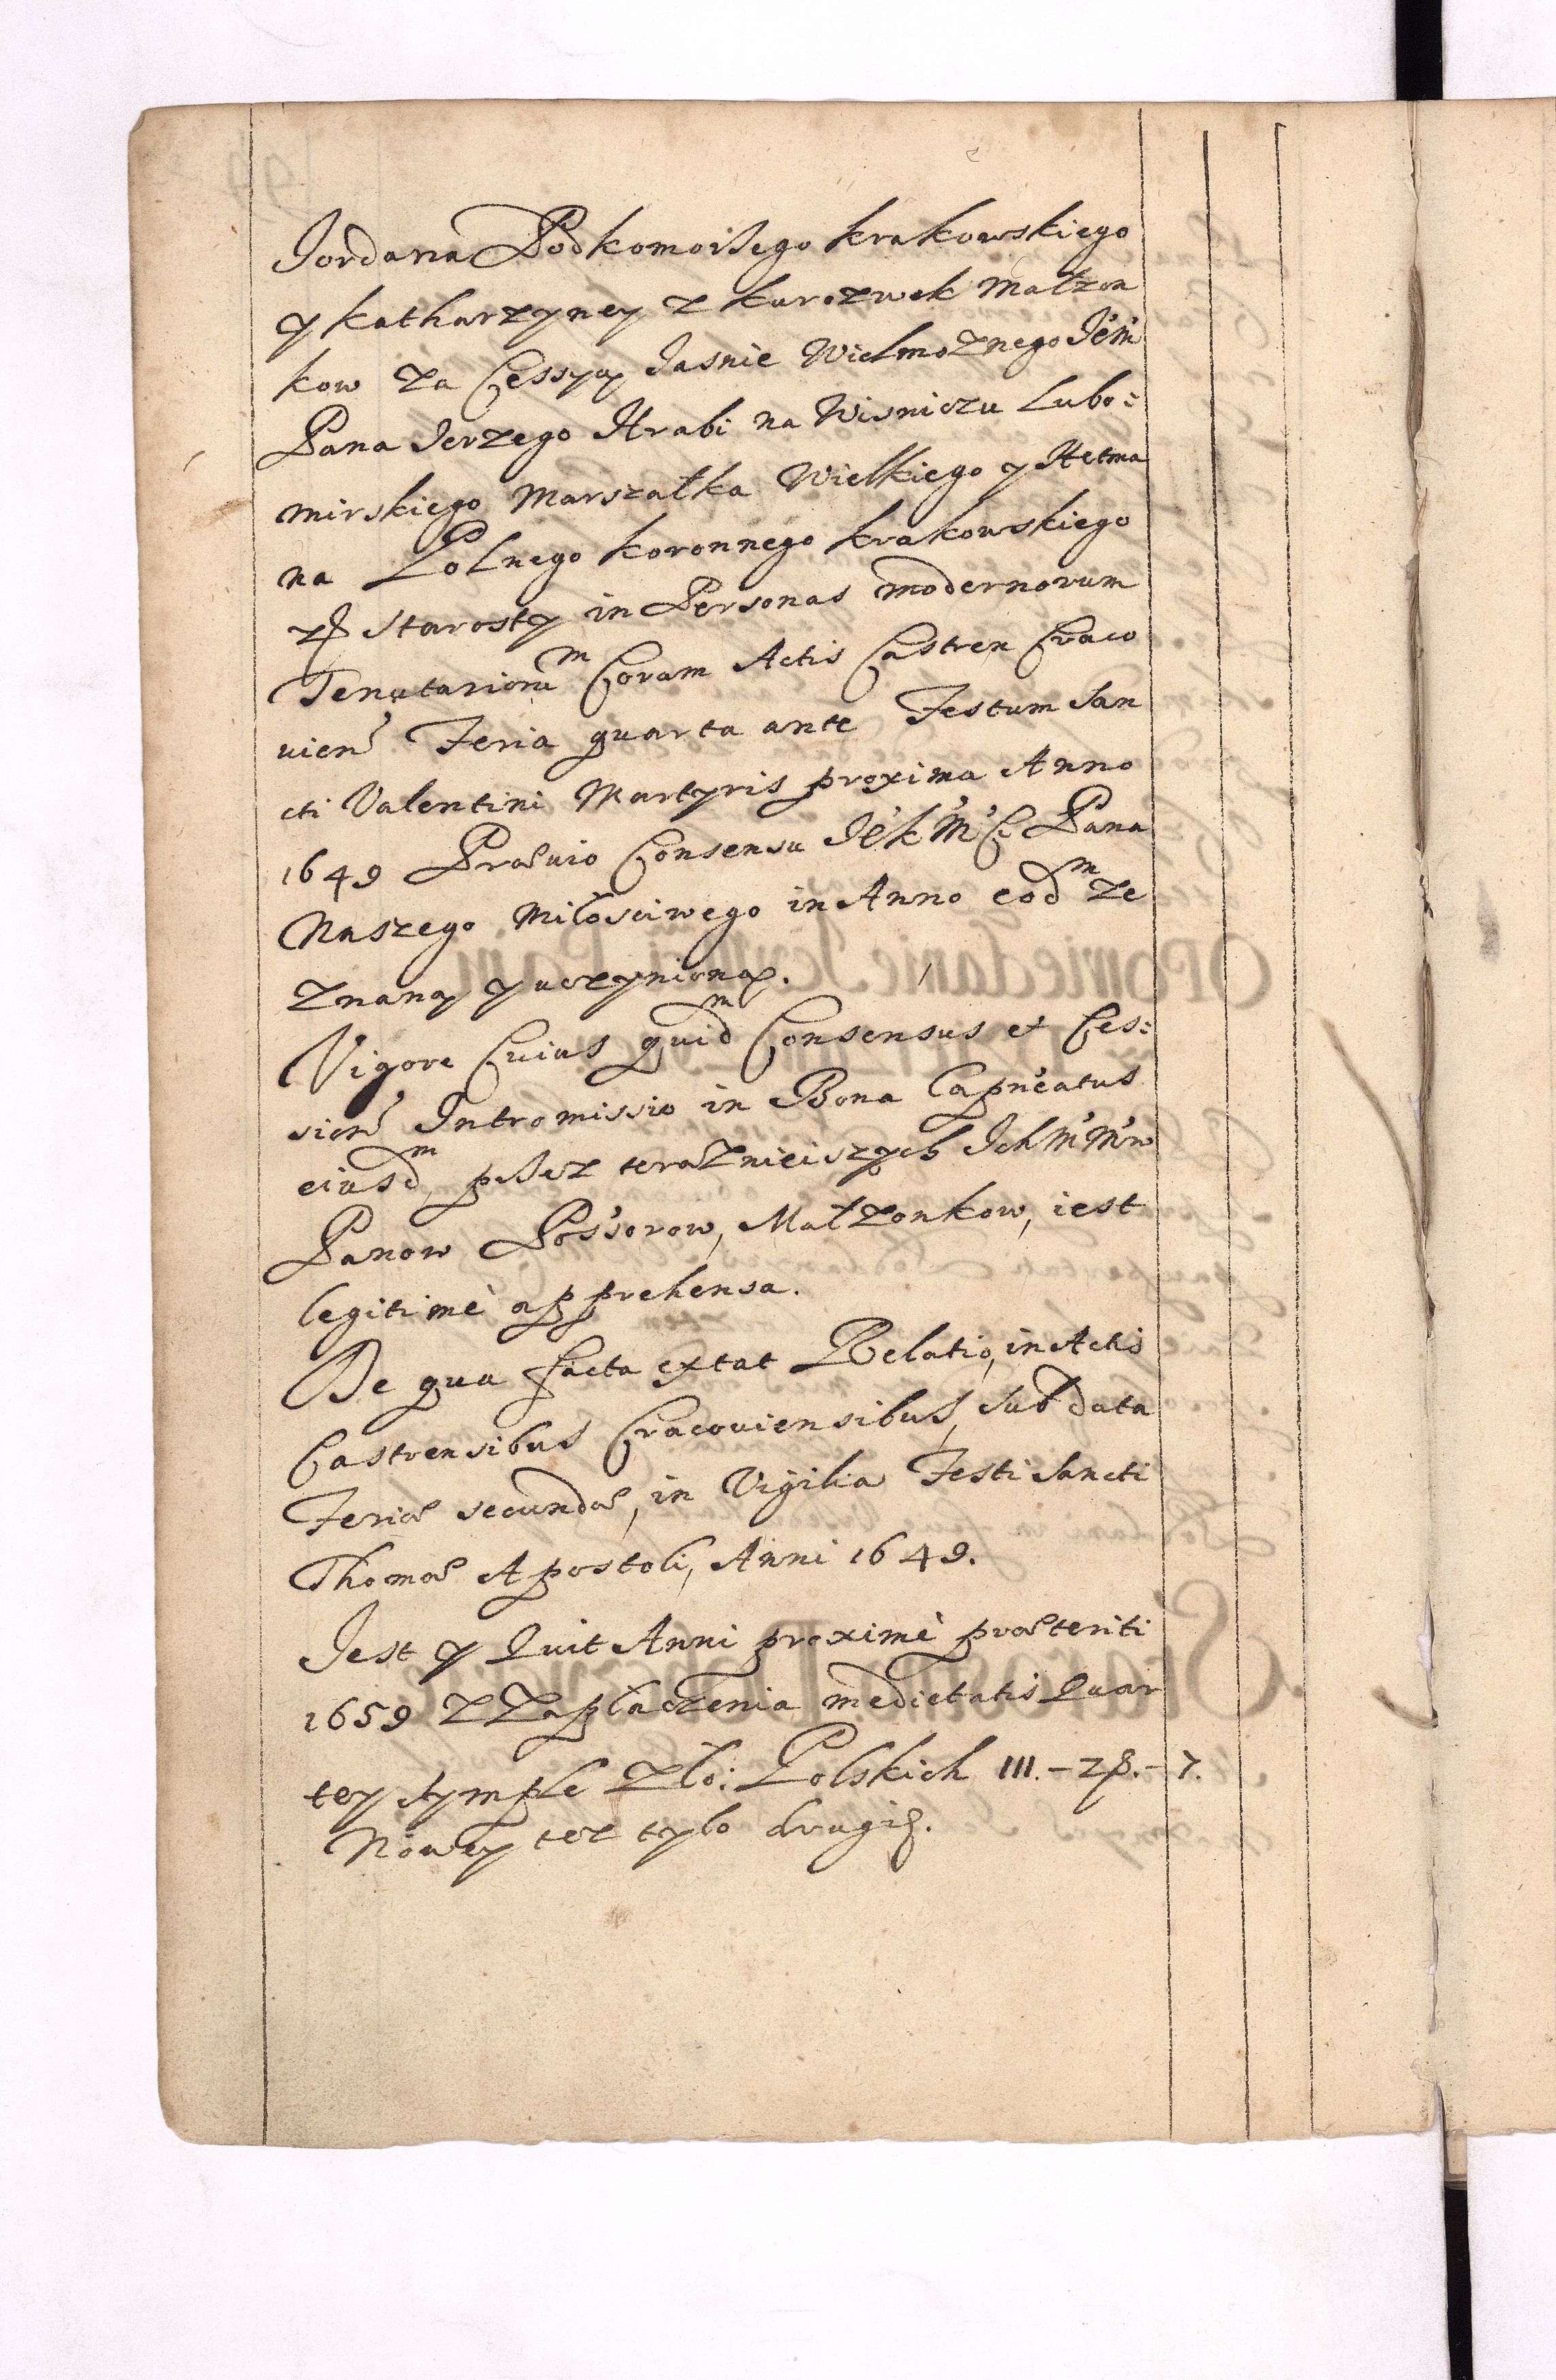 Jordana Podkomorsego krakowskiego
y katharzyney z kurozwek Małzon
kow za Cessyą Jasnie Wielmoznego Je'm'
Pana Jerzego Hrabi na Wisniczu Lubo:
mirskiego Marszałka Wielkiego y Hetma
na Polnego koronnego krakowskiego
Starosty in Personas modernorum
Tenutarioru^m Coram Actis Castren Craco
uien Feria quarta ante Festum San
cti Valentini Martyris proxima Anno
1649 Præuio Consensu Je'k'M'C Pana
Naszego Miłosciwego in Anno eod^m ze
znaną y uczynioną.
Vigore Cuius quid^m Consensus et Ces:
sion Intromissio in Bona Capneatus
eiusd^m przez teraznieiszych Ich M'M'w
Panow Pos'sorow, Małzonkow, iest
legitimè apprehensa.
De qua facta extat Relatio, in Actis
Castrensibus Cracouiensibus, sub data
Feriæ secundæ, in Vigilia Festi Sancti
Thomæ Apostoli, Anni 1649.
Jest y Quit Anni proximè præteriti
1659 z Zapłaczenia medietatis Quar
tey symple Zło: Polskich 111. - 28. - 7.
Nowey tez tylo drugie.